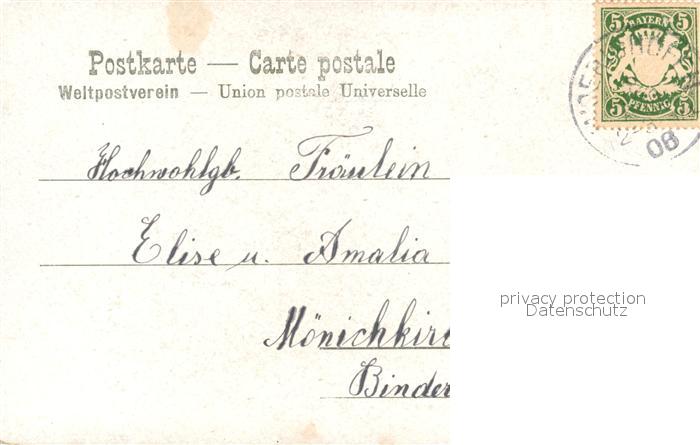 Postkarte — Carte postale
Weltpostverein — Union postale Universelle
5 BAYERN 5
5 PFENNIG 5
08
Hochwohlgb. Fräulein
Elise u. Amalia
Mönichkirc
Binder
privacy protection
Datenschutz